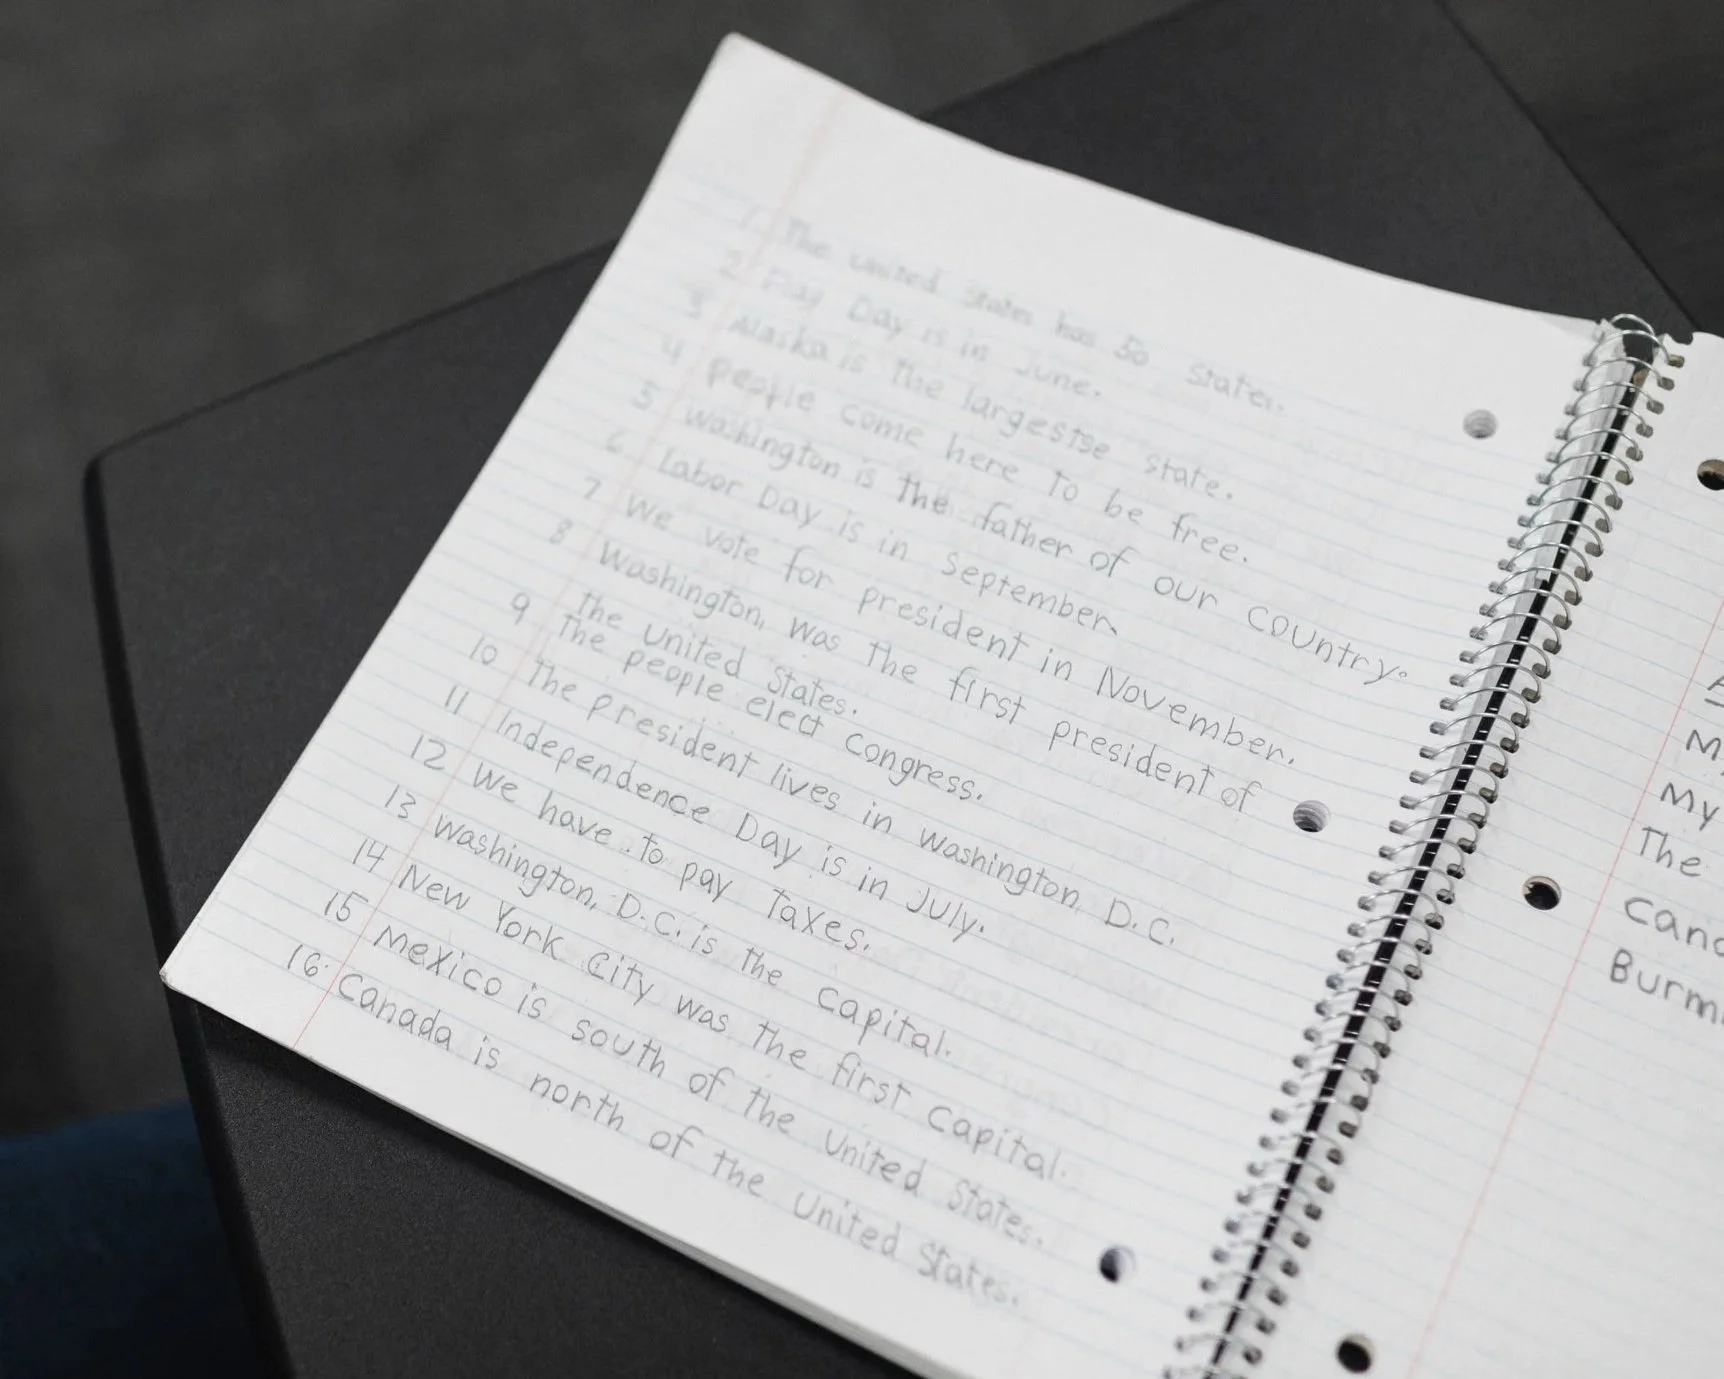 1 The United States has 50 states.
2 Flag Day is in June.
3 Alaska is the largestse state.
4 people come here to be free.
5 washington is the father of our country.
6 Labor Day is in September.
7 We vote for president in November.
8 Washington, was the first president of
the United States.
9 The people elect congress.
10 The president lives in washington, D.C.
11 Independence Day is in July.
12 we have to pay taxes.
13 washington, D.C. is the capital.
14 New York City was the first capital.
15 mexico is south of the United States.
16. canada is north of the United States.
My
The